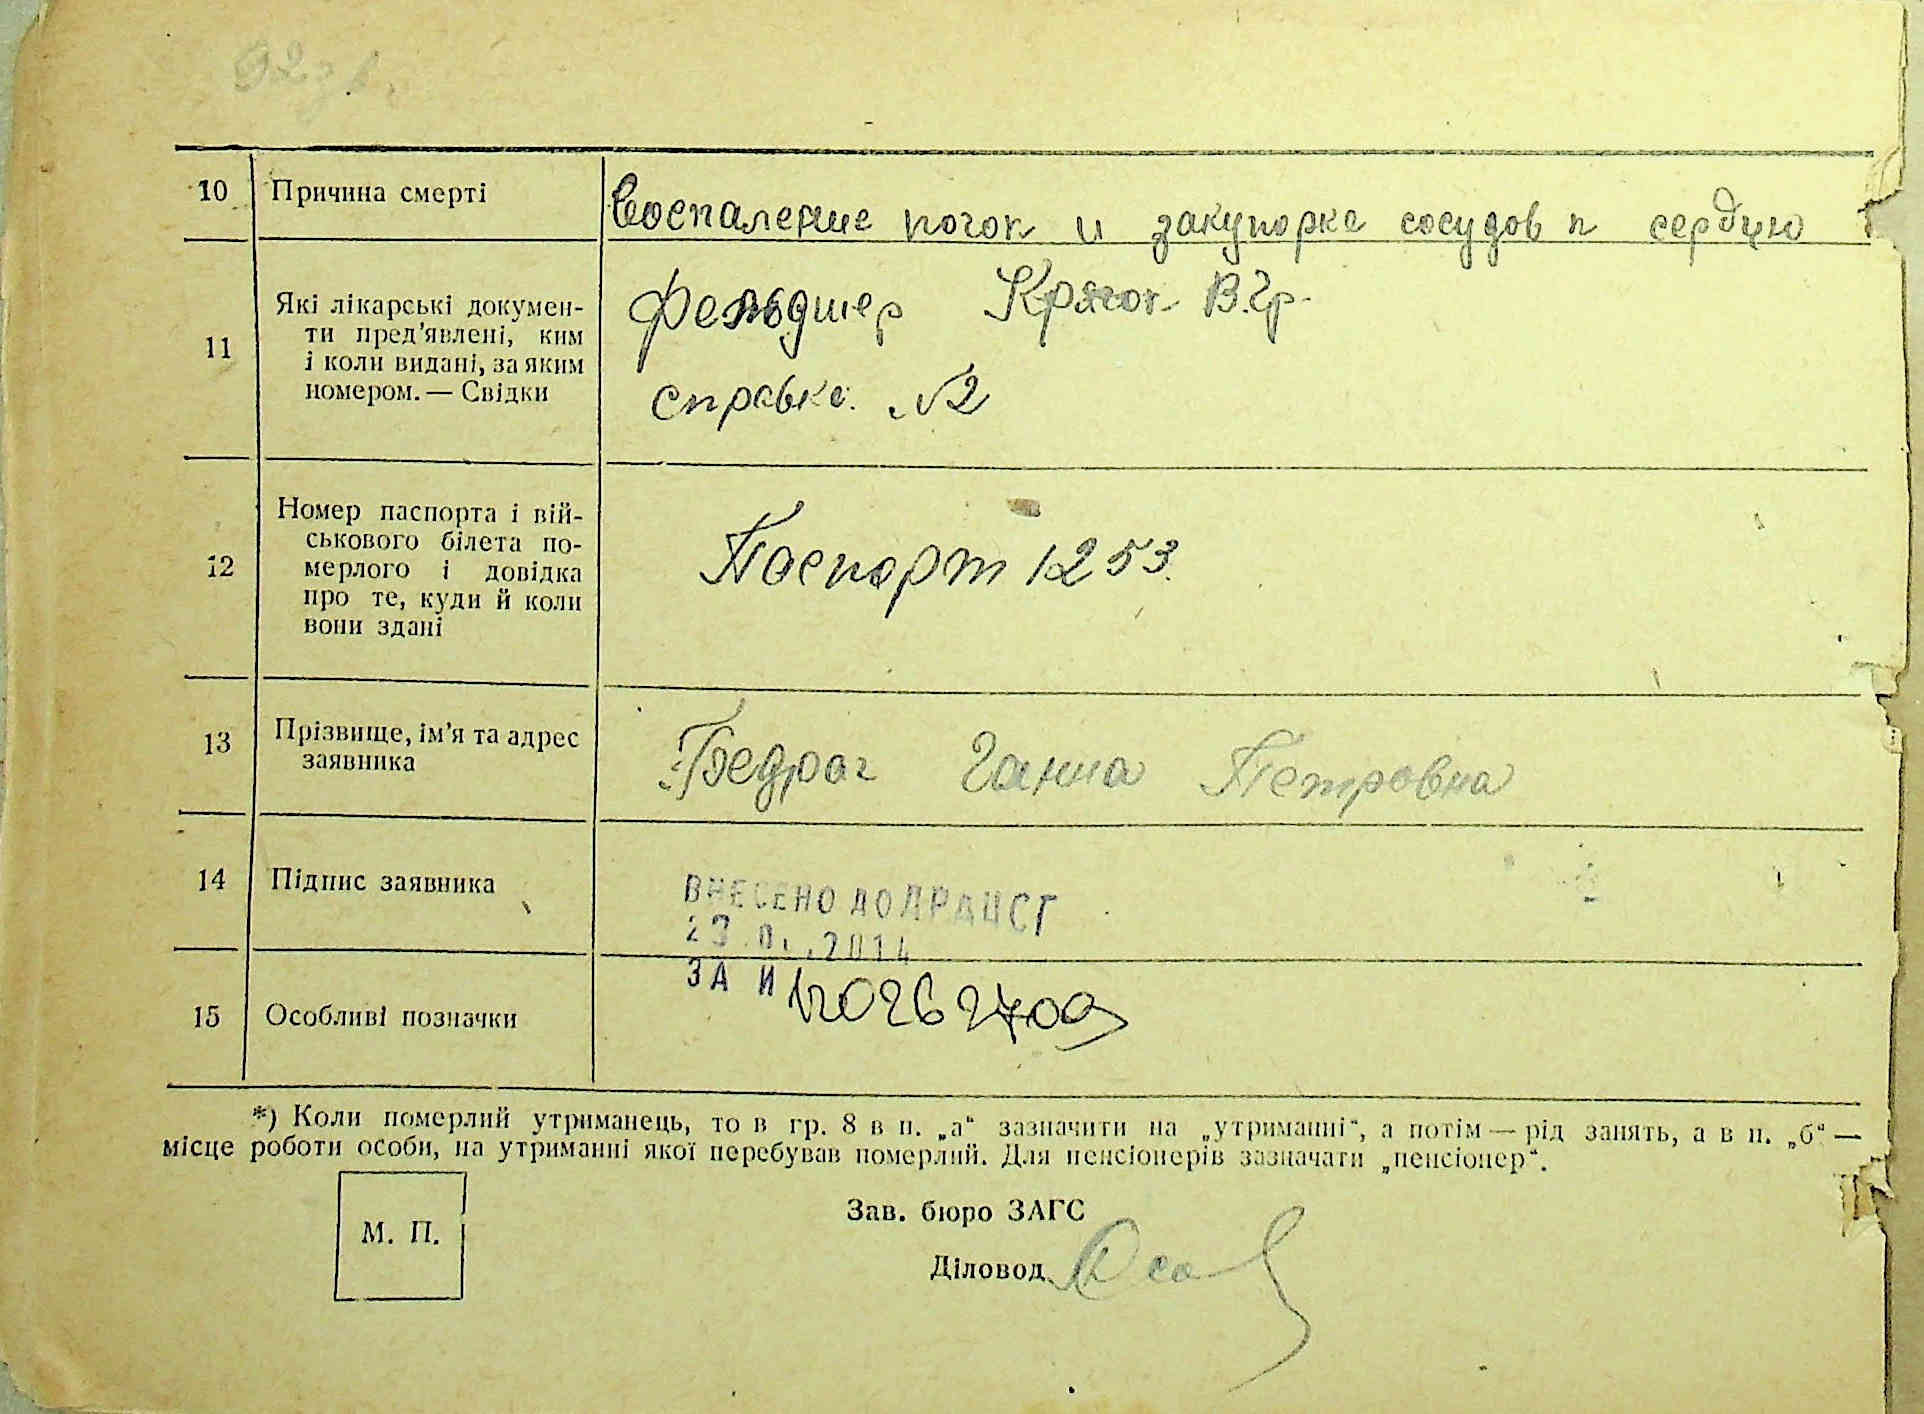 10 Причина смерті
Воспаление почок и закупорка сосудов к сердцю
11 Які лікарські докумен-
ти пред'явлені, ким
і коли видані, за яким
номером. — Свідки
Фельдшер В. Гр.
справка №2
12 Номер паспорта і вій-
ськового білета по-
мерлого і довідка
про те, куди й коли
вони здані
Паспорт 1253.
13 Прізвище, ім'я та адрес
заявника
Ганна Петровна
14 Підпис заявника
ВНЕСЕНО ДО ДРАЦСГ
2014
15 Особливі позначки
ЗА
*) Коли померлий утриманець, то в гр. 8 в п. „а“ зазначити на „утриманні“, а потім — рід занять, а в п. „б“ —
місце роботи особи, на утриманні якої перебував померлий. Для пенсіонерів зазначати „пенсіонер“.
М. П.
Зав. бюро ЗАГС
Діловод